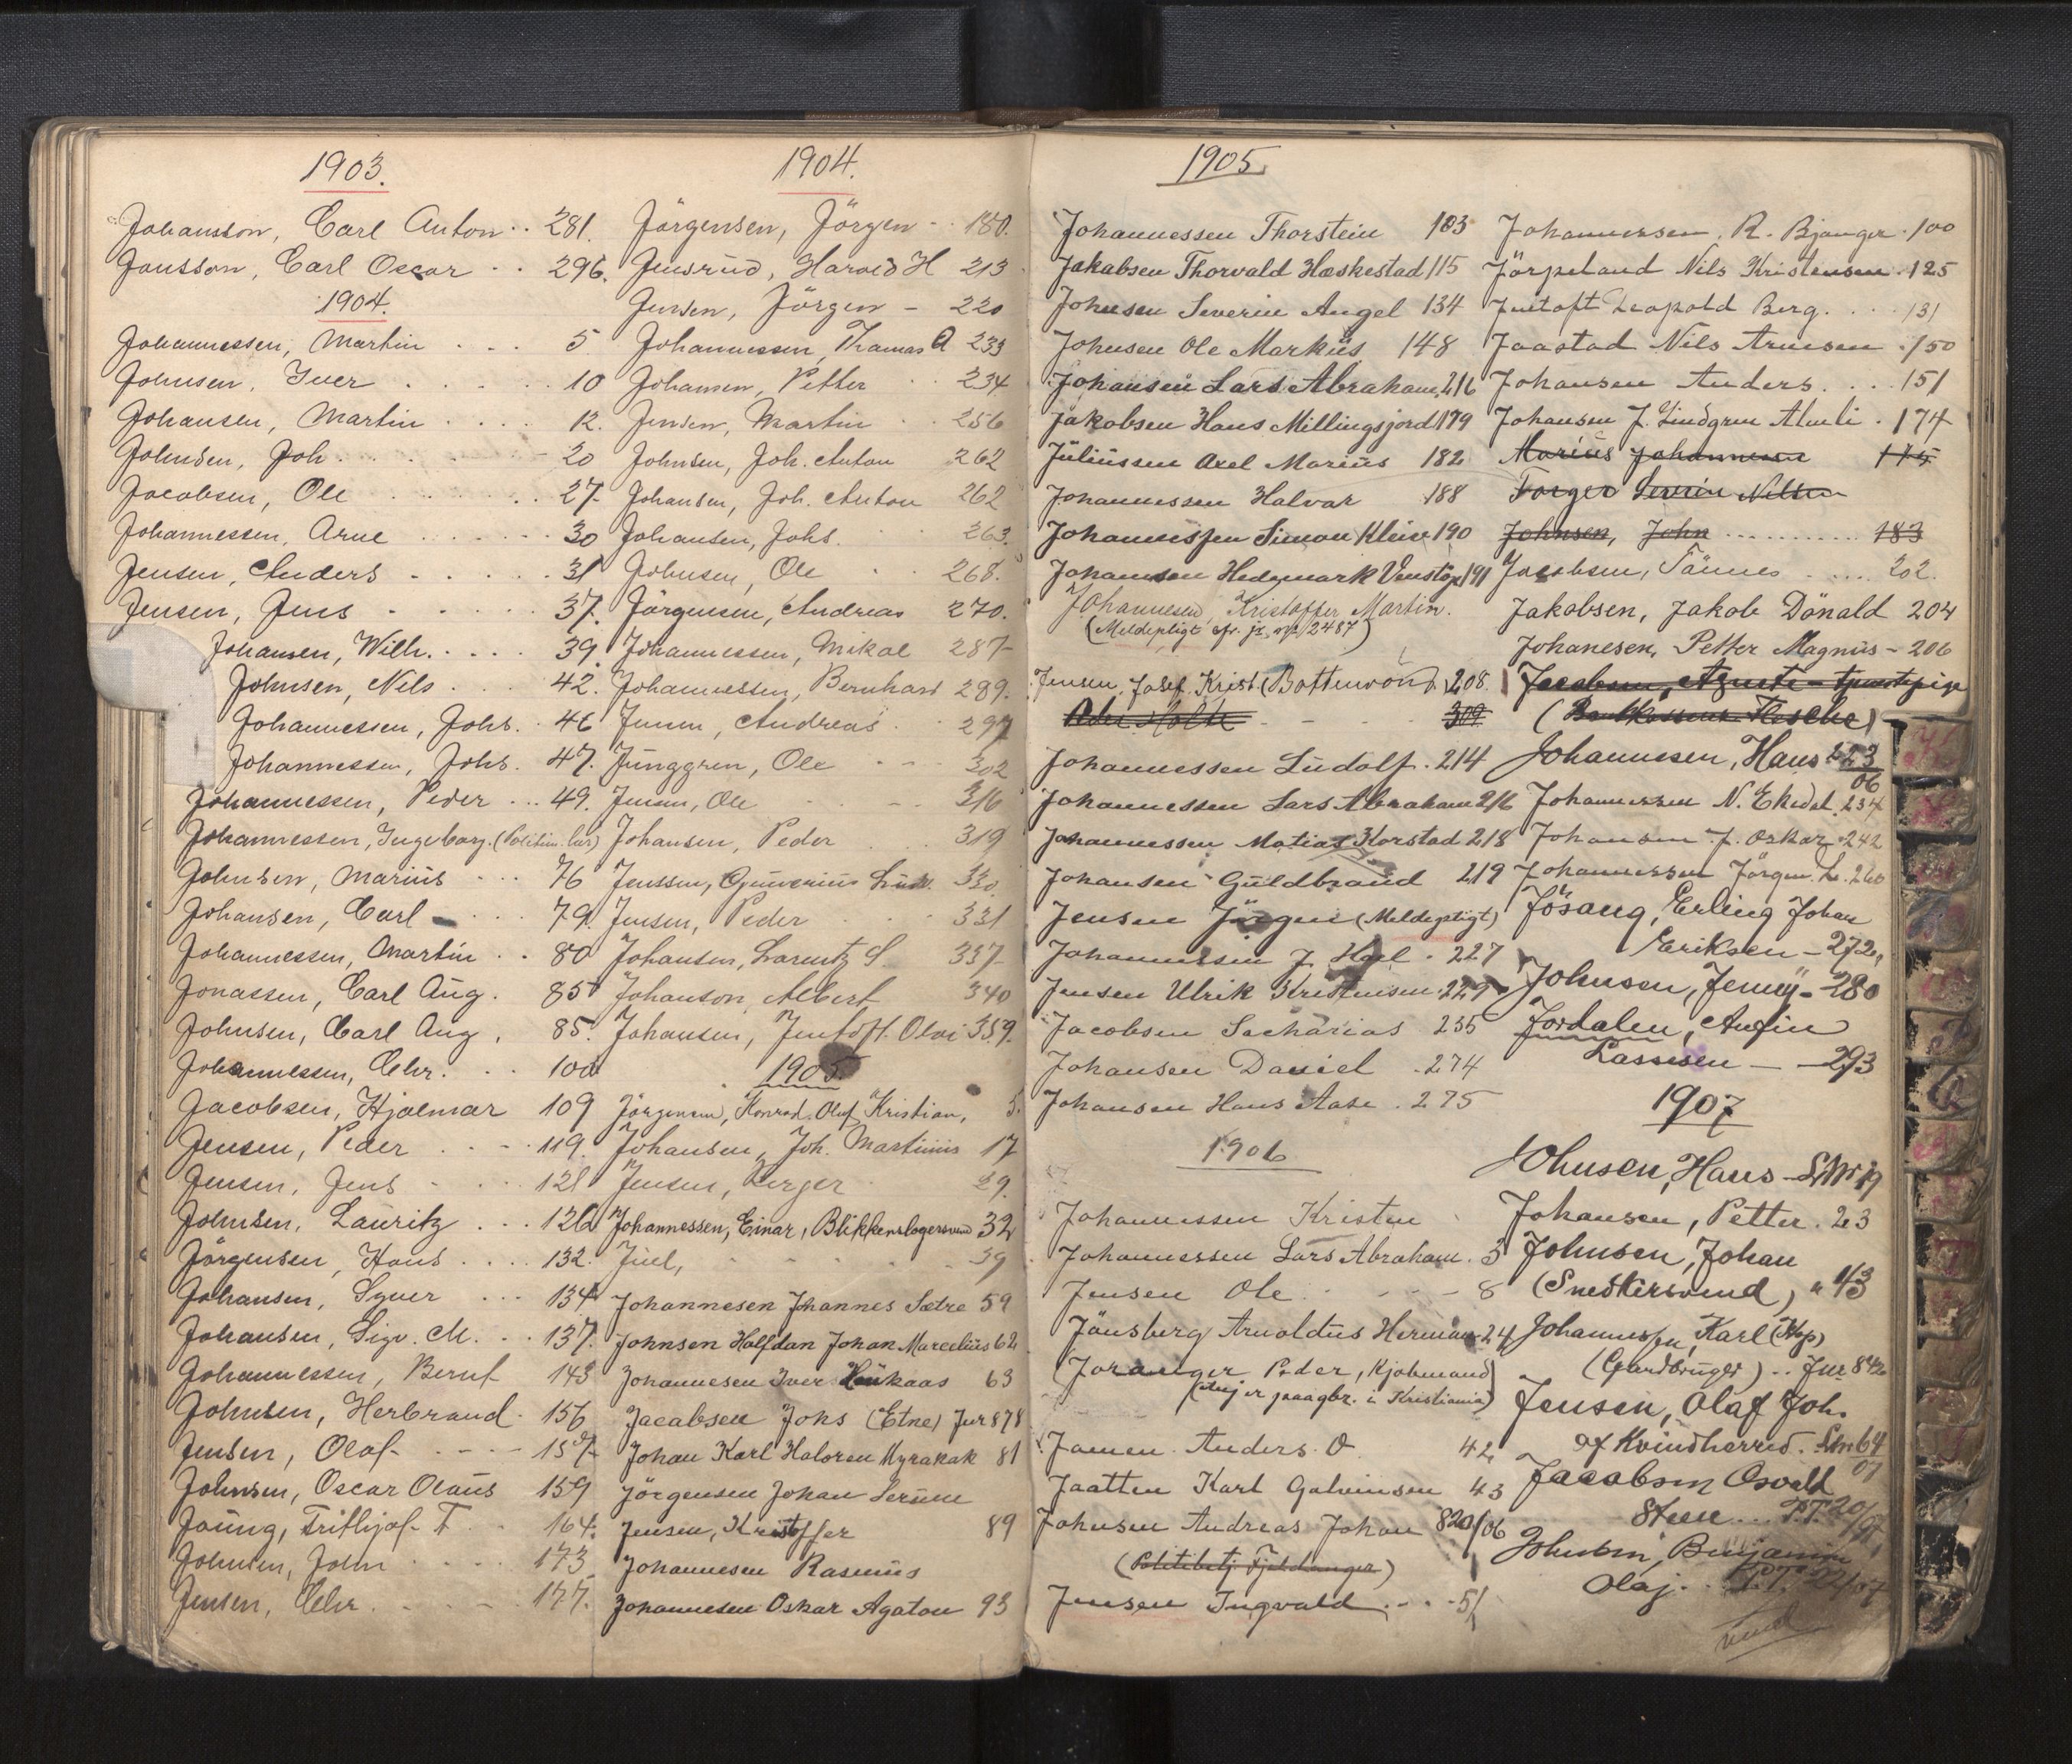 1903.
Johansson, Carl Anton .. 281.
Jonsson, Carl Oscar .. 296.
1904.
Johannessen, Martin ... 5
Johnsen, Iver .... 10
Johansen, Martin .... 12.
Johnsen, Joh. ... 20
Jacobsen, Ole .... 27.
Johannessen, Arne .... 30
Jensen, Anders ..... 31
Jensen, Jens .... 37.
Johansen, Wilh. .... 39.
Johnsen, Nels ... 42.
Johannessen, Johs. . 46
Johannessen, Johs. 47.
Johannessen, Peder ... 49.
Johannessen, Ingeborg.
Johnsen, Marius ... 76
Johansen, Carl ... 79.
Johannessen, Martin .. 80
Jonassen, Carl Aug. 85
Johnsen, Carl Aug. 85.
Johannessen, Chr. .. 100
Jacobsen, Hjalmar 109
Jensen, Peder ... 119.
Jensen, Jens .... 121
Johnsen, Lauritz ... 126
Jörgensen, Hans .... 132.
Johansen, Syver ... 134
Johansen, Sigv. M. .. 137.
Johannessen, Bernt 143
Johnsen, Herbrand . 156
Jensen, Olaf ---- 157
Johnsen, Oscar Olaus 159
Joung, Frithjof. F .. 164.
Johnsen, John .... 173
Jensen, Chr. .... 177.
1904.
Jörgensen, Jörgen .. 180.
Jensrud, Harald H 213
Jensen, Jörgen - 220
Johannessen, Thomas A 233
Johansen, Petter .. 234
Jensen, Martin .. 256
Johnsen, Joh. Anton 262
Johansen, Joh. Anton 262
Johansen, Johs. 263.
Johnsen, Ole .. 268.
Jörgensen, Andreas 270.
Johannessen, Mikal 287
Johannessen, Bernhard 289.
Jensen, Andreas .. 297
Junggren, Ole .. 302
Jensen, Ole ... 316
Johansen, Peder .. 319
Jenssen, 330
Jensen, Peder .. 331
Johansen, Lorentz S. 337
Johanson, Albert 340
Johansen, Jentoft. Olai 359.
1905.
Jörgensen, Konrad. Oluf Kristian, 5.
Johansen, Joh. Martinius 17
Jensen, Birger 29.
Johannessen, Einar, Blikkenslagersvend 32
Juel, ------ 39
Johannesen Johannes Sætre 59
Johnsen Halfdan Johan Marcelius 62
Johannesen Iver 63
Jacobsen Johs (Etne) Jur 878
Johan Karl Haloren Myrakak 81
Jörgensen Johan
Jensen, Kristoffer 89
Johannesen Rasmus
Johannesen Oskar Agaton 93
1905
Johannessen Thorstein 103
Jakobsen Thorvald Hæskestad 115
Johnsen Severin Angel 134
Johnsen Ole Markus 148
Johansen Lars Abraham 216
Jakobsen Hans Millingsjord 179
Juliussen Axel Marius 182
Johannessen Halvar 188
Johannessen Simon Kleive 190
Johansen Hedemark 191
Johannesen, Kristoffer Martin.
(Meldepligt cfr. jr. 2487)
Jensen, Josef. Krist. 208
309
Johannessen Ludolf . 214
Johannessen Lars Abraham 216
Johannessen Matias Korstad 218
Johansen Guldbrand 219
Jensen Jörgen (Meldepligt)
Johannessen J. . 227
Jensen Ulrik Kristensen . 229
Jacobsen Sacharias 235
Johansen Daniel . 274
Johansen Hans Aase . 275
1906
Johannessen Kristen
Johannessen Lars Abraham . 3
Jensen Ole .... 8
Jönsberg Arnoldus Herman 24
(Joranger Peder, Kjöbmand)
(Anj er paagbr. i Kristiania)
Jansen Anders O 42
Jaatten Karl Galvinsen 43
Johnsen Andreas Johan 820/06
(Politibetj Fjeldanger)
Jensen Ingvald .... 51
Johannessen, R. Bjanger . 100
Jörpeland Nils Kristensen . 125
Jentoft Leopold Berg .... 131
Jaastad Nils Arnesen . 150
Johansen Anders .... 151
Johansen J. Lindgren Almli . 174
Marius Johannesen 175
Torger Severin Nilsen
Johnsen, John .......... 183
Jacobsen, Tönnes ..... 202.
Jakobsen, Jakob Dönald 204
Johanesen, Petter Magnus - 206
Jacobsen, Agnete - tjenestepige
Johannessen, Hans 223/06
Johannessen N. Ekedal. 234
Johansen J. Oskar . 242
Johannessen Jörgen. L. 260
Jösang, Erling Johan
Eriksen - 272
Johnsen, Jenny - 280
Jordalen, Anfin
Lassesen - - 293
1907
Johnsen, Hans - 19
Johansen, Petter . 23
Johnsen, Johan
(Snedkersvend) " 43
Johannessen, Karl (Hop)
(Gardbruger) .. Jur 842
Jensen, Olaf Joh.
af Kvindherred. 64/07
Jacobsen Osvald
Steen ... P.T. 20/07
Johnsen, Benjamin
Olaj . P.T. 22/07